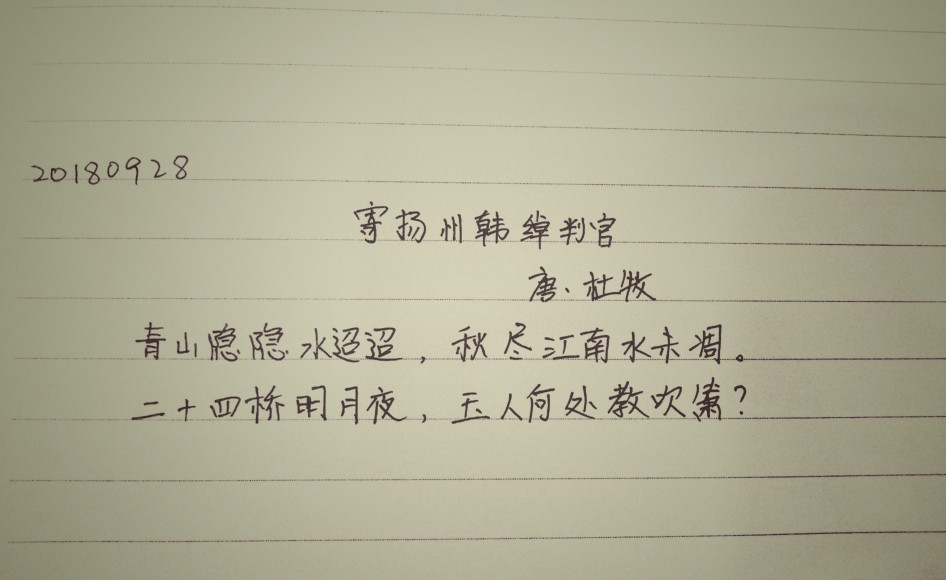 20180928
寄扬州韩绰判官
唐·杜牧
青山隐隐水迢迢，秋尽江南水未凋。
二十四桥明月夜，玉人何处教吹箫？